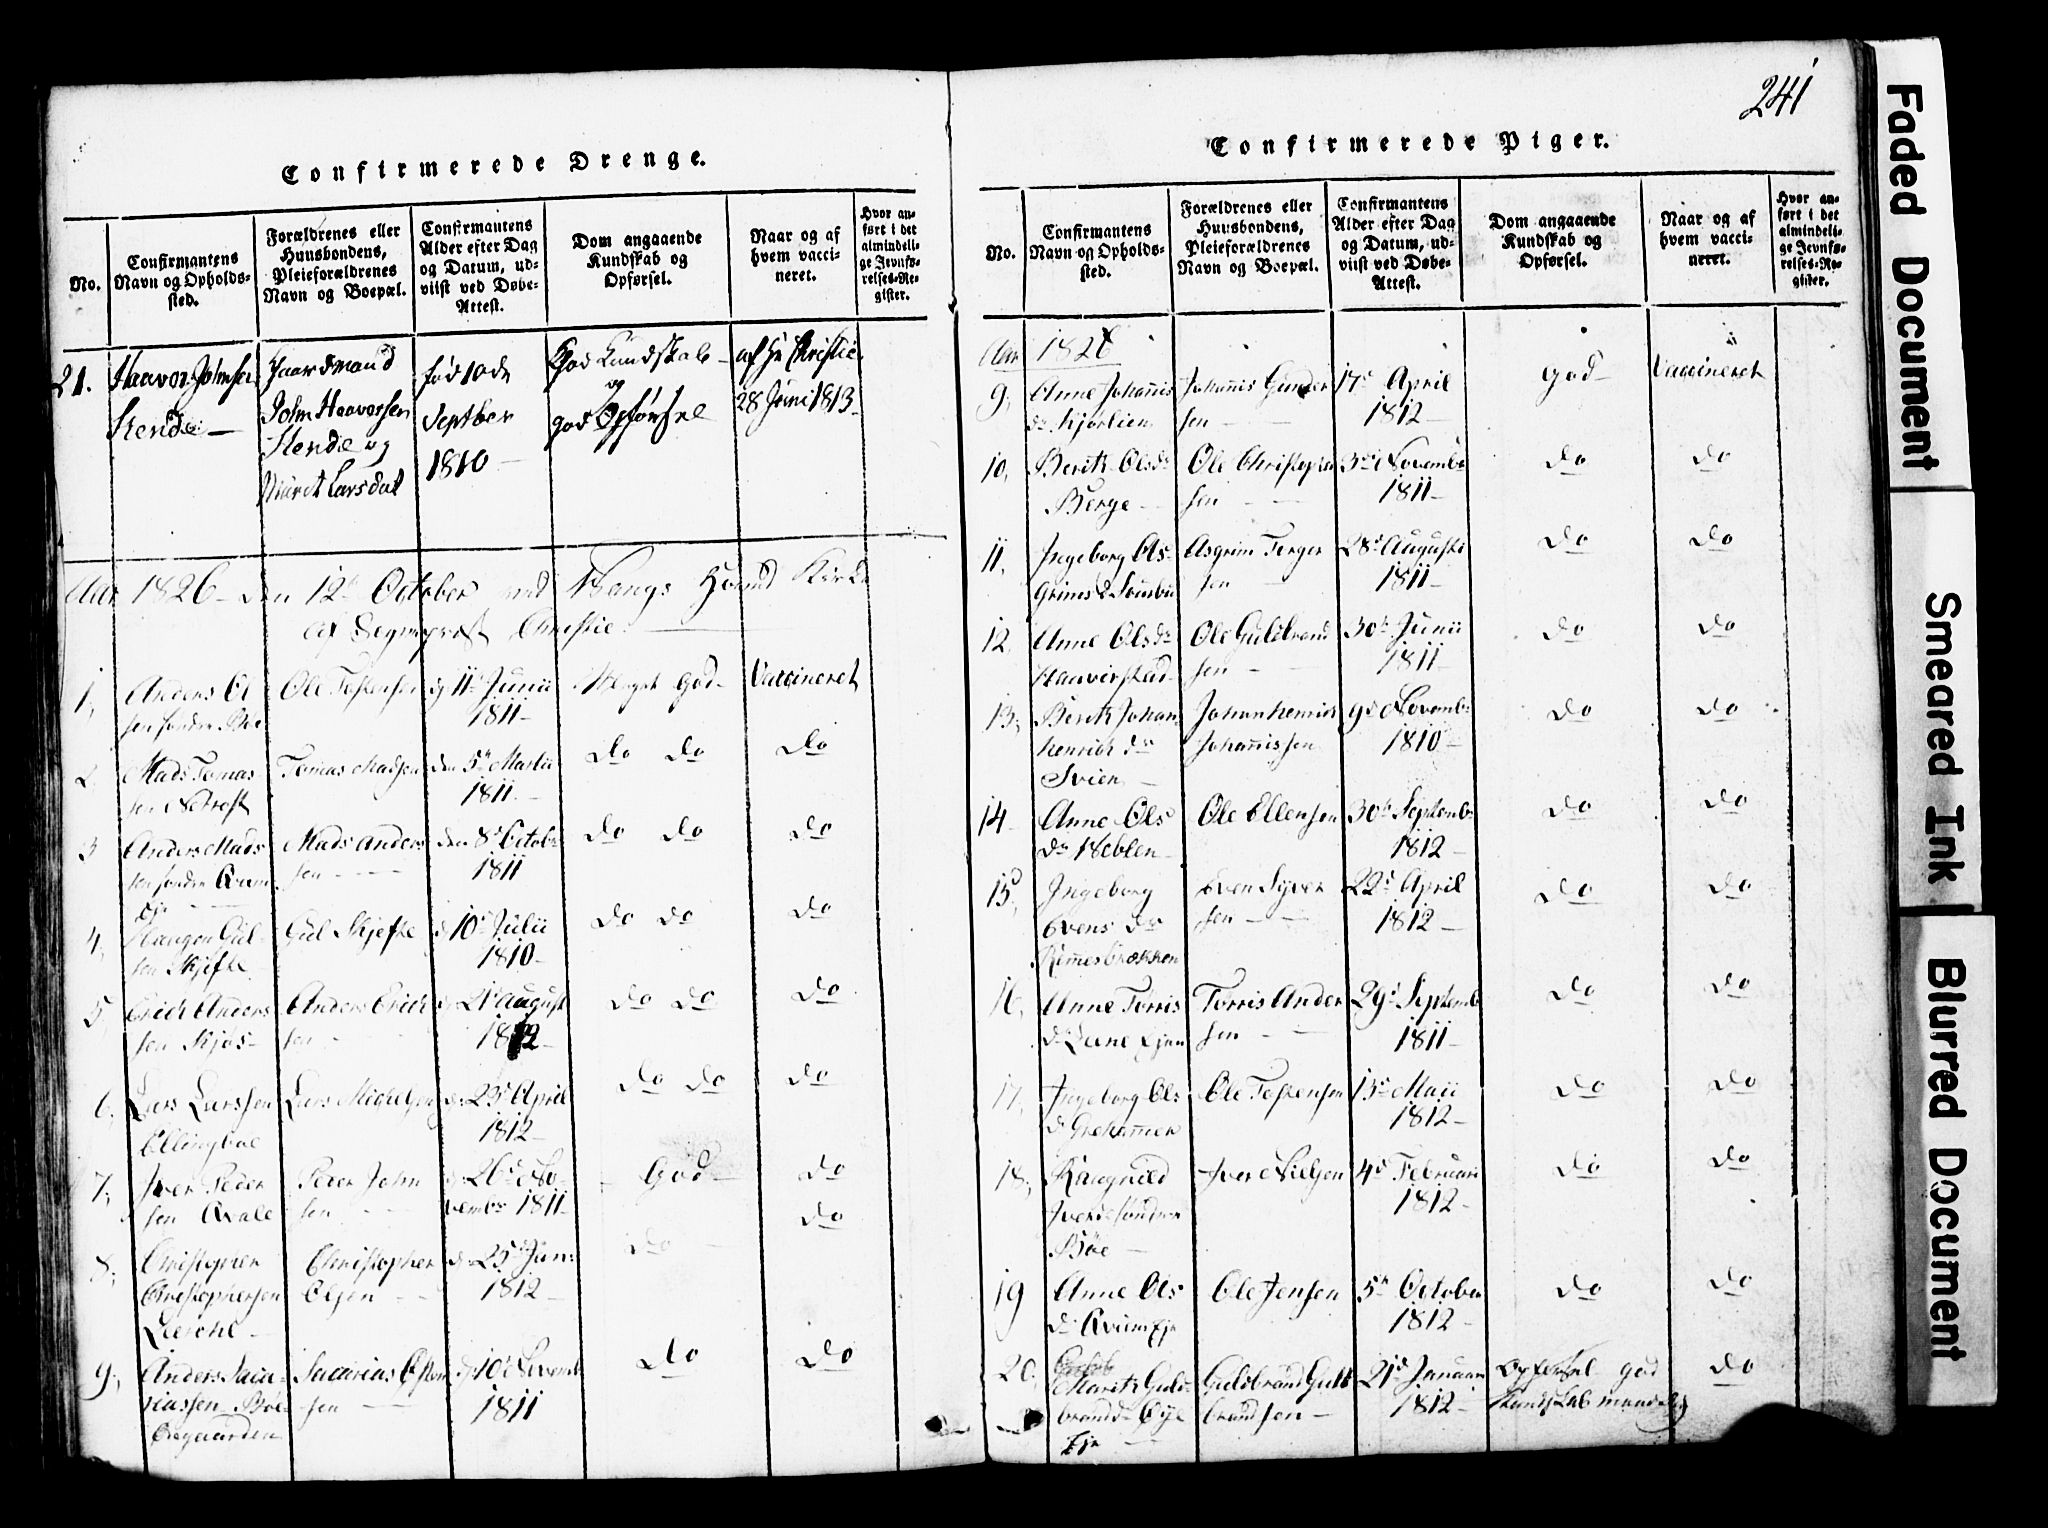 Confirmerede Drenge.
No.
Confirmantens
Navn og Opholds-
sted.
Forældrenes eller
Huusbondens,
Pleieforældrenes
Navn og Boepæl.
Confirmantens
Alder efter Dag
og Datum, ud-
viist ved Døbe-
Attest.
Dom angaaende
Kundskab og
Opførsel.
Naar og af
hvem vacci-
neret.
Hvor an-
ført i det
almindeli-
ge Jevnfø-
relses-Re-
gister.
21.
Haavor Johnsen
Hende
Gaardmand
John Haavorsen
Hende og
Marit Larsdat
fød 10de
Septber
1810
God Kundskab
og
god Opførsel
af Hr Christie
28 Juni 1813
Aar 1826 den 12te October ved Vangs Hoved Kirke
af Sogneprest Christie.
1,
Anders Ol
sen søndre Bøe
Ole Testensen
d 11te Junii
1811
Meget God
Vaccineret
2
Mads Tomas
sen
Tomas Madsen
den 5te Martii
1811
do do
do
3
Anders Mads
sen søndre Qvam
Eje
Mads Anders
sen
den 8de Octobr
1811
do do
do
4,
Haagen Gul
sen Skjefte
Gul Skjefte
d 10de Julii
1810
do do
do
5,
Erich Anders
sen Skjøs
Anders Erich
sen
d 21de August
1812
do do
do
6,
Lars Larssen
Ellingboe
Lars Michelsen
d 23de April
1812
do do
do
7,
Iver Peder
sen Qvale
Peder John
sen
d 26de No
vembr 1811
God
do
8,
Christopher
Christophersen
Christopher
Olsen
d 25de Jan:
1812
do
do
9,
Anders Saca-
riassen Bøe-
Sacarias Osten
sen
d 10de Novemb
1811
do
do
241
Confirmerede Piger.
No.
Confirmantens
Navn og Opholds-
sted.
Forældrenes eller
Huusbondens,
Pleieforældrenes
Navn og Boepæl.
Confirmantens
Alder efter Dag
og Datum, ud-
viist ved Døbe-
Attest.
Dom angaaende
Kundskab og
Opførsel.
Naar og af
hvem vacci-
neret.
Hvor an-
ført i det
almindeli-
ge Jevnfø-
relses-Re-
gister.
Aar 1826
9,
Anne Johannis
dr Kjørlien
Johannis Gunder
sen
17de April
1812
God
Vaccineret
10,
Berith Olsdr
Berge
Ole Christopher
sen
3die Novembr
1811
do
do
11,
Ingeborg As-
grimsd
Asgrim Torger
sen
28de Augusti
1811
do
do
12,
Anne Olsdr
Haaverstad
Ole Guldbrand
sen
30te Junii
1811
do
do
13,
Berith Johan
henrich dr
Svien
Johan henrich
Johannissen
9de Novembr
1810
do
do
14
Anne Ols
dr Veblen
Ole Ellensen
30te Septembr
1812
do
do
15,
Ingeborg
Evens dr
Even Syver
sen
22de April
1812
do
do
16,
Anne Torris
Torris Ander
sen
29de Septemb
1811
do
do
17,
Ingeborg Ols
Ole Testensen
13de Maii
1812
do
do
18,
Rangnild
Ivers d søndre
Bøe
Iver Nielsen
4de Februari
1812
do
do
19
Anne Ols
dr Qvam Eje
Ole Jensen
5te October
1812
do
do
20,
Marith Guld
brand dr Øye
Eje
Guldbrand Guld
brandsen
21de Januari
1812
Opførsel god
Kundskab maadelig
do
Faded Document
Smeared Ink
Blurred Document